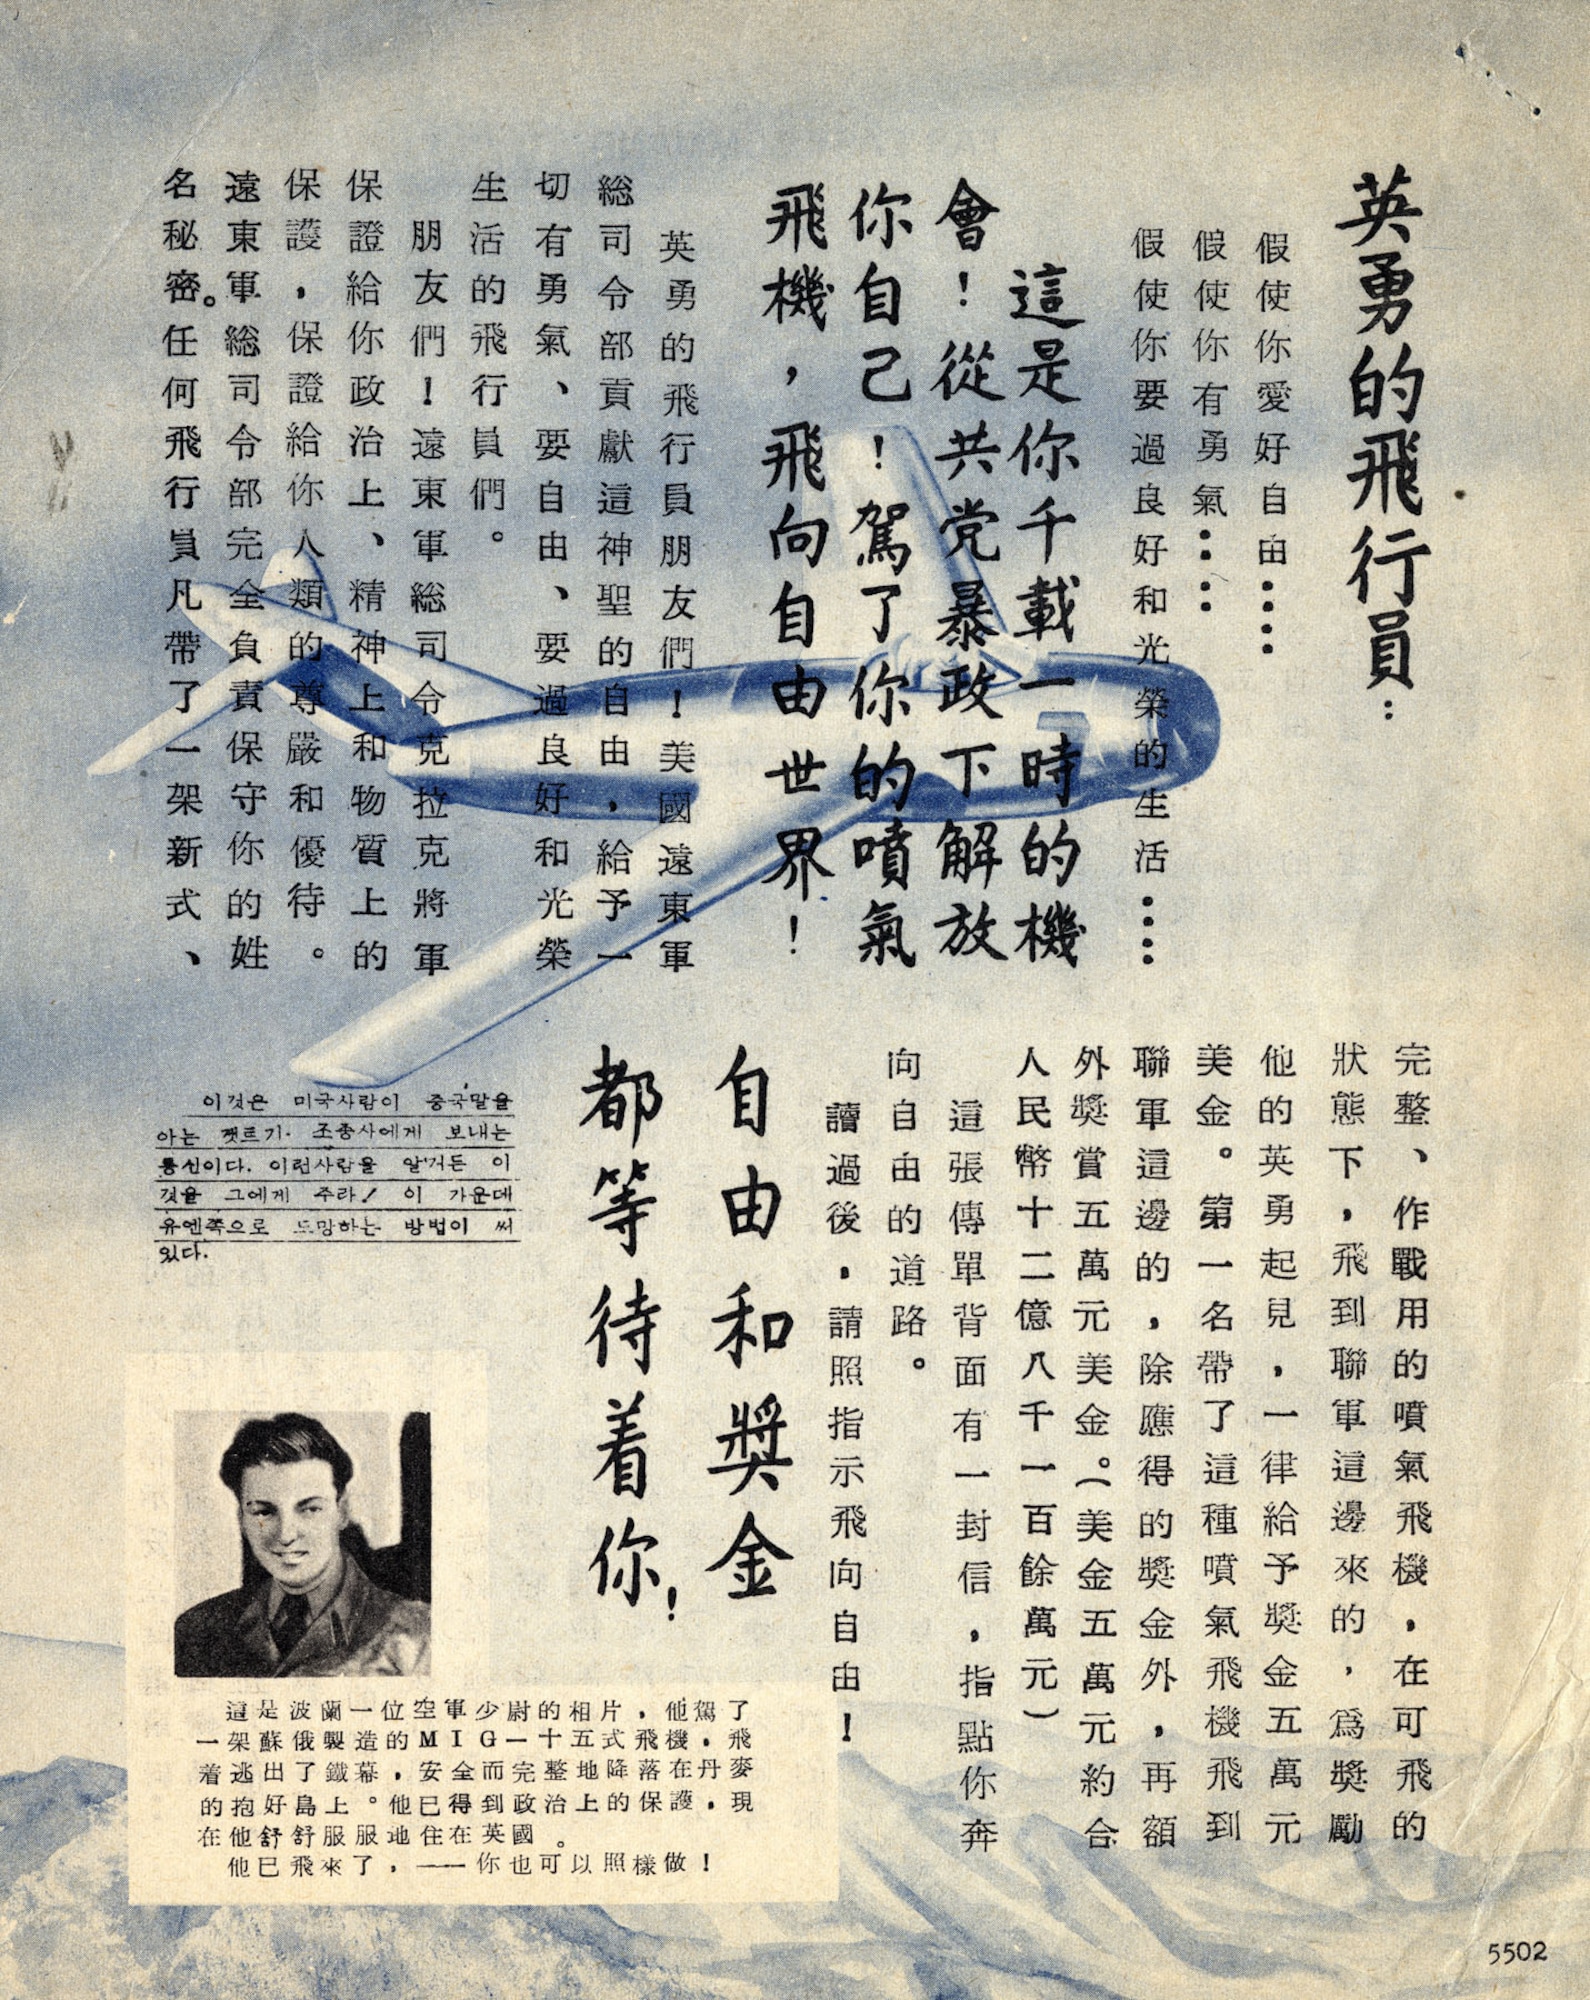 英勇的飛行員：
假使你愛好自由……
假使你有勇氣……
假使你要過良好和光榮的生活……
這是你千載一時的機
會！從共党暴政下解放
你自己！駕了你的噴氣
飛機，飛向自由世界！
英勇的飛行員朋友們！美國遠東軍
総司令部貢獻這神聖的自由，給予一
切有勇氣、要自由、要過良好和光榮
生活的飛行員們。
朋友們！遠東軍総司令克拉克將軍
保證給你政治上、精神上和物質上的
保護，保證給你人類的尊嚴和優待。
遠東軍総司令部完全負責保守你的姓
名秘密。任何飛行員凡帶了一架新式、
完整、作戰用的噴氣飛機，在可飛的
狀態下，飛到聯軍這邊來的，爲獎勵
他的英勇起見，一律給予獎金五萬元
美金。第一名帶了這種噴氣飛機飛到
聯軍這邊的，除應得的獎金外，再額
外獎賞五萬元美金。（美金五萬元約合
人民幣十二億八千一百餘萬元）
這張傳單背面有一封信，指點你奔
向自由的道路。
讀過後，請照指示飛向自由！
自由和獎金
都等待着你！
이것은 미국사람이 중국말을
아는 젯트기 조종사에게 보내는
통신이다. 이런사람을 알거든 이
것을 그에게 주라! 이 가운데
유엔쪽으로 도망하는 방법이 써
있다.
這是波蘭一位空軍少尉的相片，他駕了
一架蘇俄製造的MIG一十五式飛機，飛
着逃出了鐵幕，安全而完整地降落在丹麥
的抱好島上。他已得到政治上的保護，現
在他舒舒服服地住在英國。
他已飛來了，——你也可以照樣做！
5502